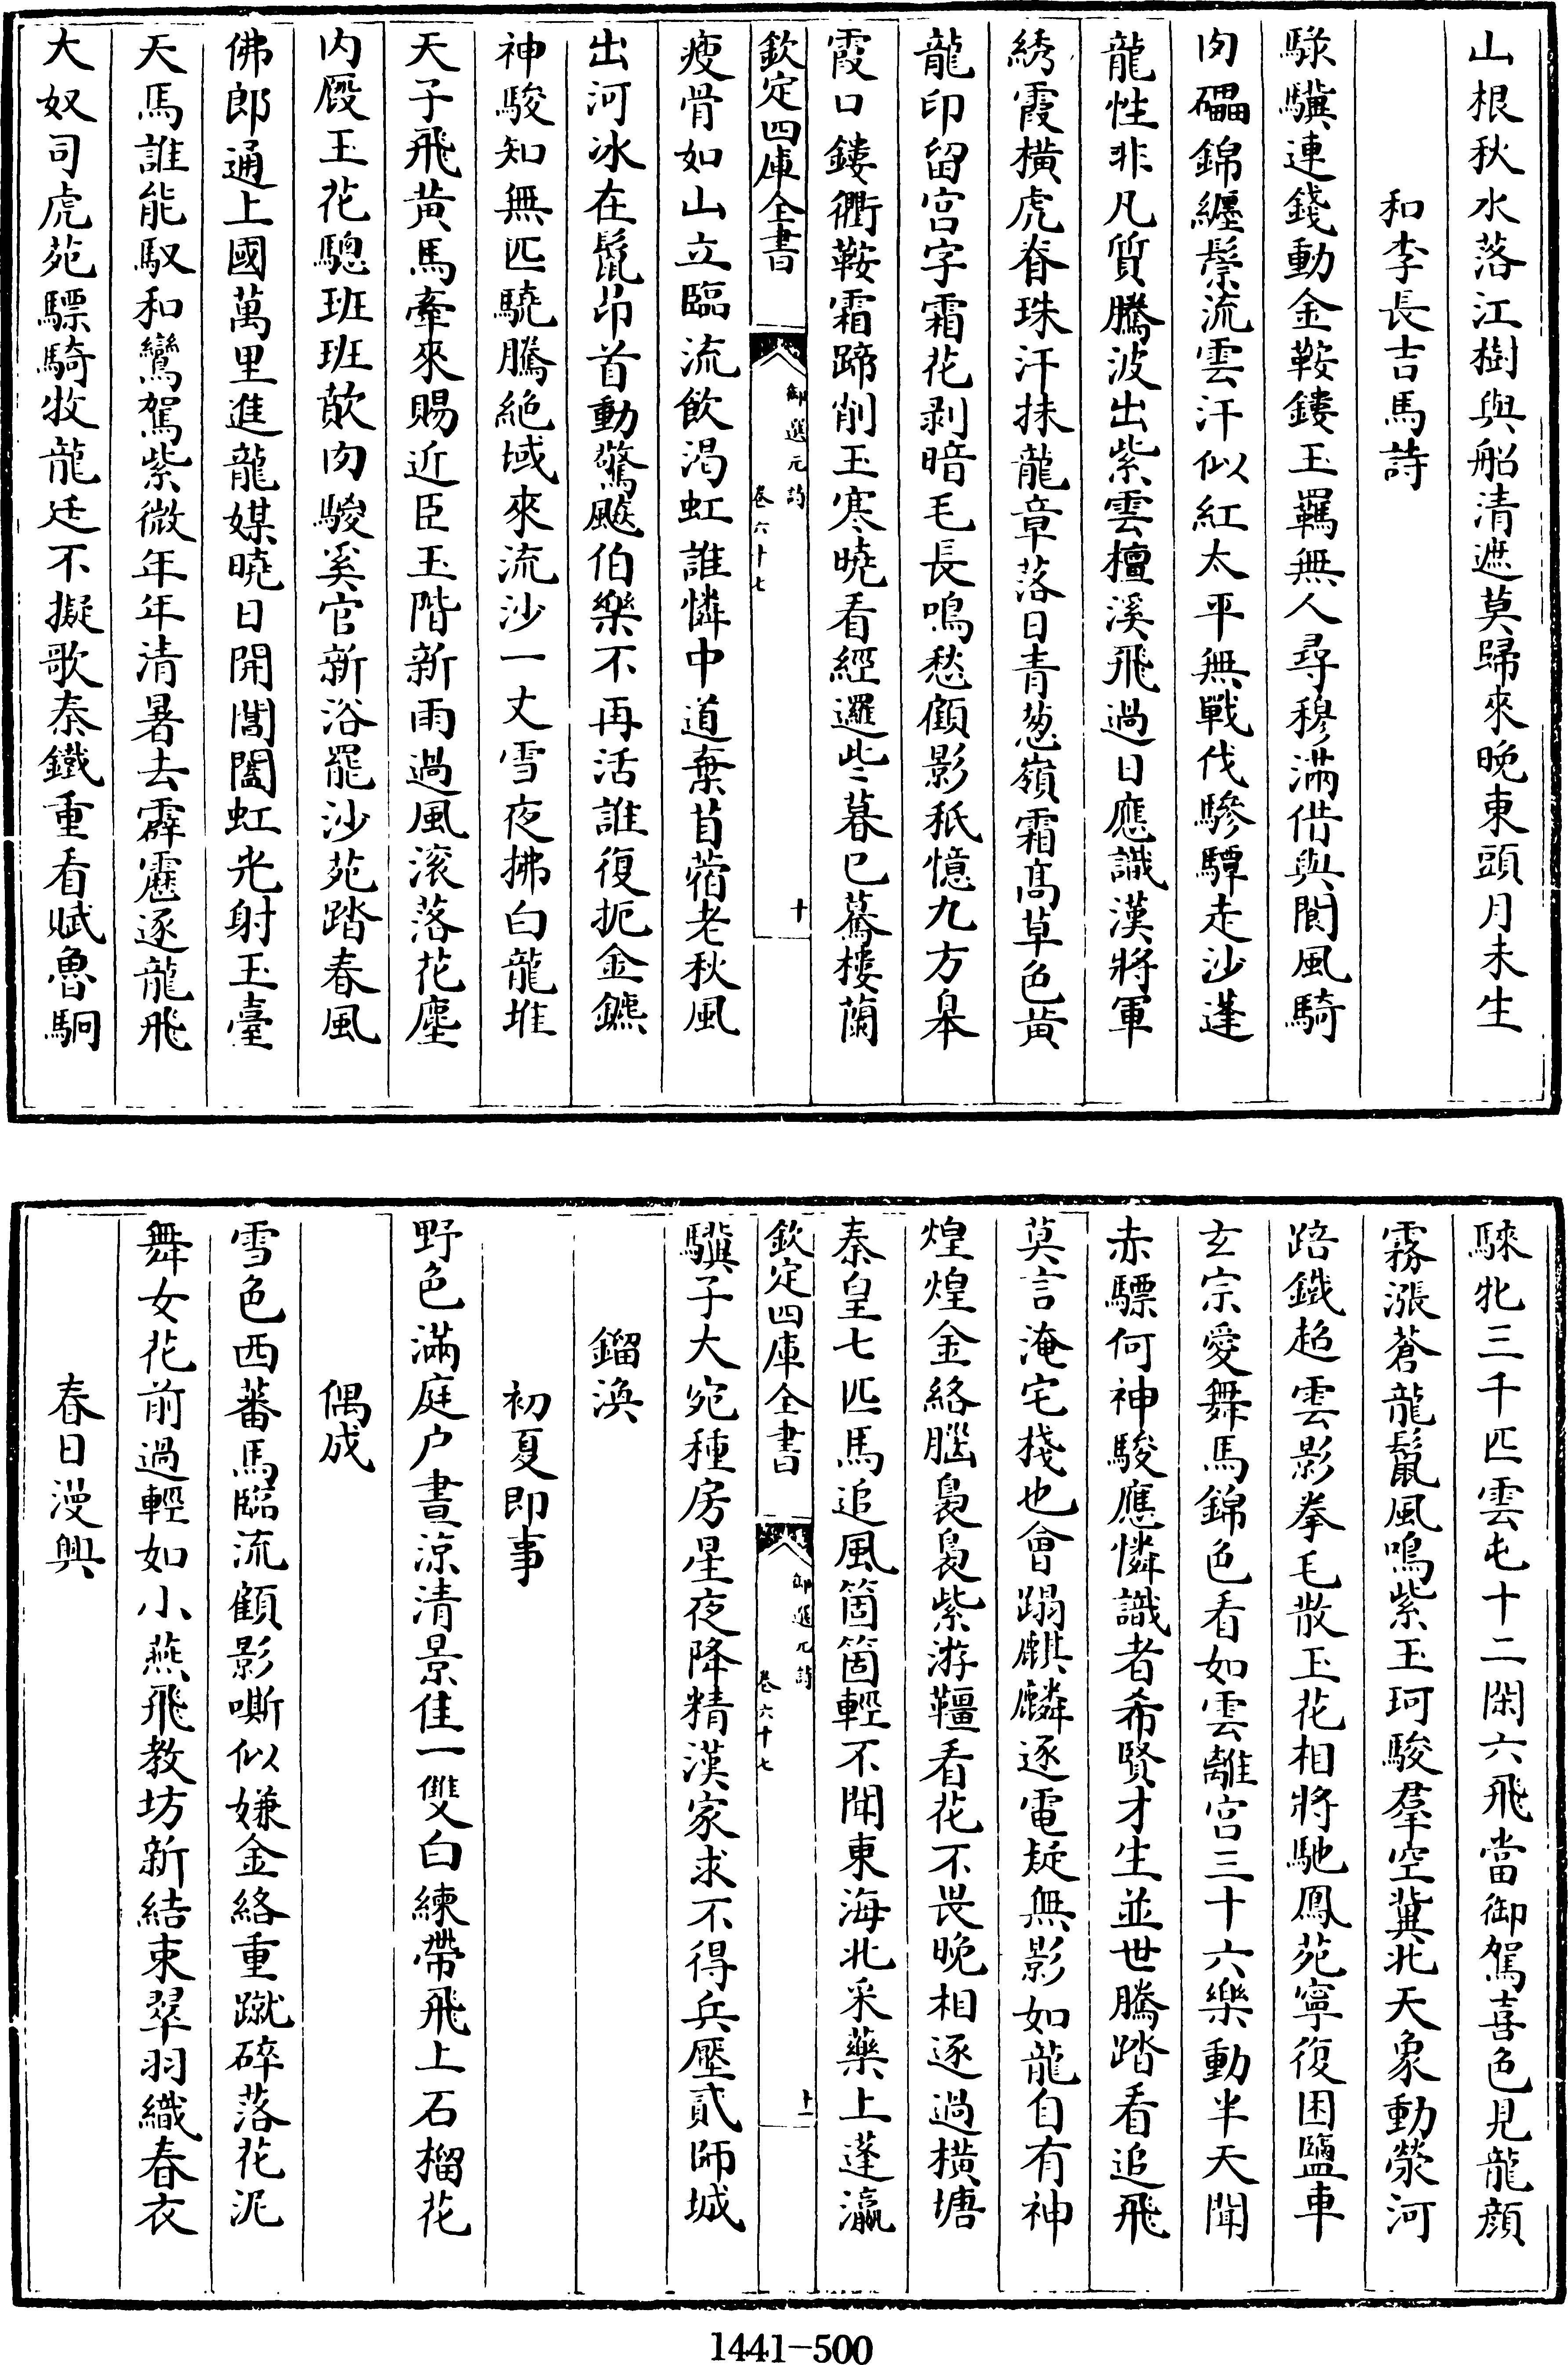 山根秋水落江樹與船清遮莫歸來晚東頭月未生
和李長吉馬詩
騄驥連錢動金鞍鏤玉羈無人尋穆滿借與閬風騎
肉礧錦纏鬃流雲汗似紅太平無戰伐驂驔走沙蓬
龍性非凡質騰波出紫雲檀溪飛過日應識漢將軍
綉霞橫虎脊珠汗抹龍章落日青葱嶺霜髙草色黄
龍印留宫字霜花剥暗毛長鳴愁顧影秖憶九方皋
霞口鏤衢鞍霜蹄削玉寒曉看經邏些暮已驀樓蘭
欽定四庫全書
御選元詩
卷六十七
十
瘦骨如山立臨流飲渇虹誰憐中道棄苜蓿老秋風
出河冰在鬛昻首動驚飈伯樂不再活誰復扼金鑣
神駿知無匹驍騰絶域來流沙一丈雪夜拂白龍堆
天子飛黄馬牽來賜近臣玉階新雨過風滚落花塵
内廐玉花驄班班散肉騣奚官新浴罷沙苑踏春風
佛郎通上國萬里進龍媒曉日開閶闔虹光射玉臺
天馬誰能馭和鸞駕紫微年年清暑去霹靂逐龍飛
大奴司虎苑驃騎牧龍廷不擬歌泰鐵重看賦魯駉
騋牝三千匹雲屯十二閑六飛當御駕喜色見龍顔
霧漲蒼龍鬛風鳴紫玉珂駿羣空冀北天象動滎河
踣鐡超雲影拳毛散玉花相將馳鳳苑寧復困鹽車
玄宗愛舞馬錦色看如雲離宫三十六樂動半天聞
赤驃何神駿應憐識者希賢才生並世騰踏看追飛
莫言淹宅棧也會蹋麒麟逐電疑無影如龍自有神
煌煌金絡腦裊裊紫游韁看花不畏晚相逐過横塘
秦皇七匹馬追風箇箇輕不聞東海北采藥上蓬瀛
欽定四庫全書
御選元詩
卷六十七
十一
驥子大宛種房星夜降精漢家求不得兵壓貳師城
鎦渙
初夏即事
野色滿庭户晝涼清景佳一雙白練帶飛上石榴花
偶成
雪色西蕃馬臨流顧影嘶似嫌金絡重蹴碎落花泥
舞女花前過輕如小燕飛教坊新結束翠羽織春衣
春日漫興
1441-500